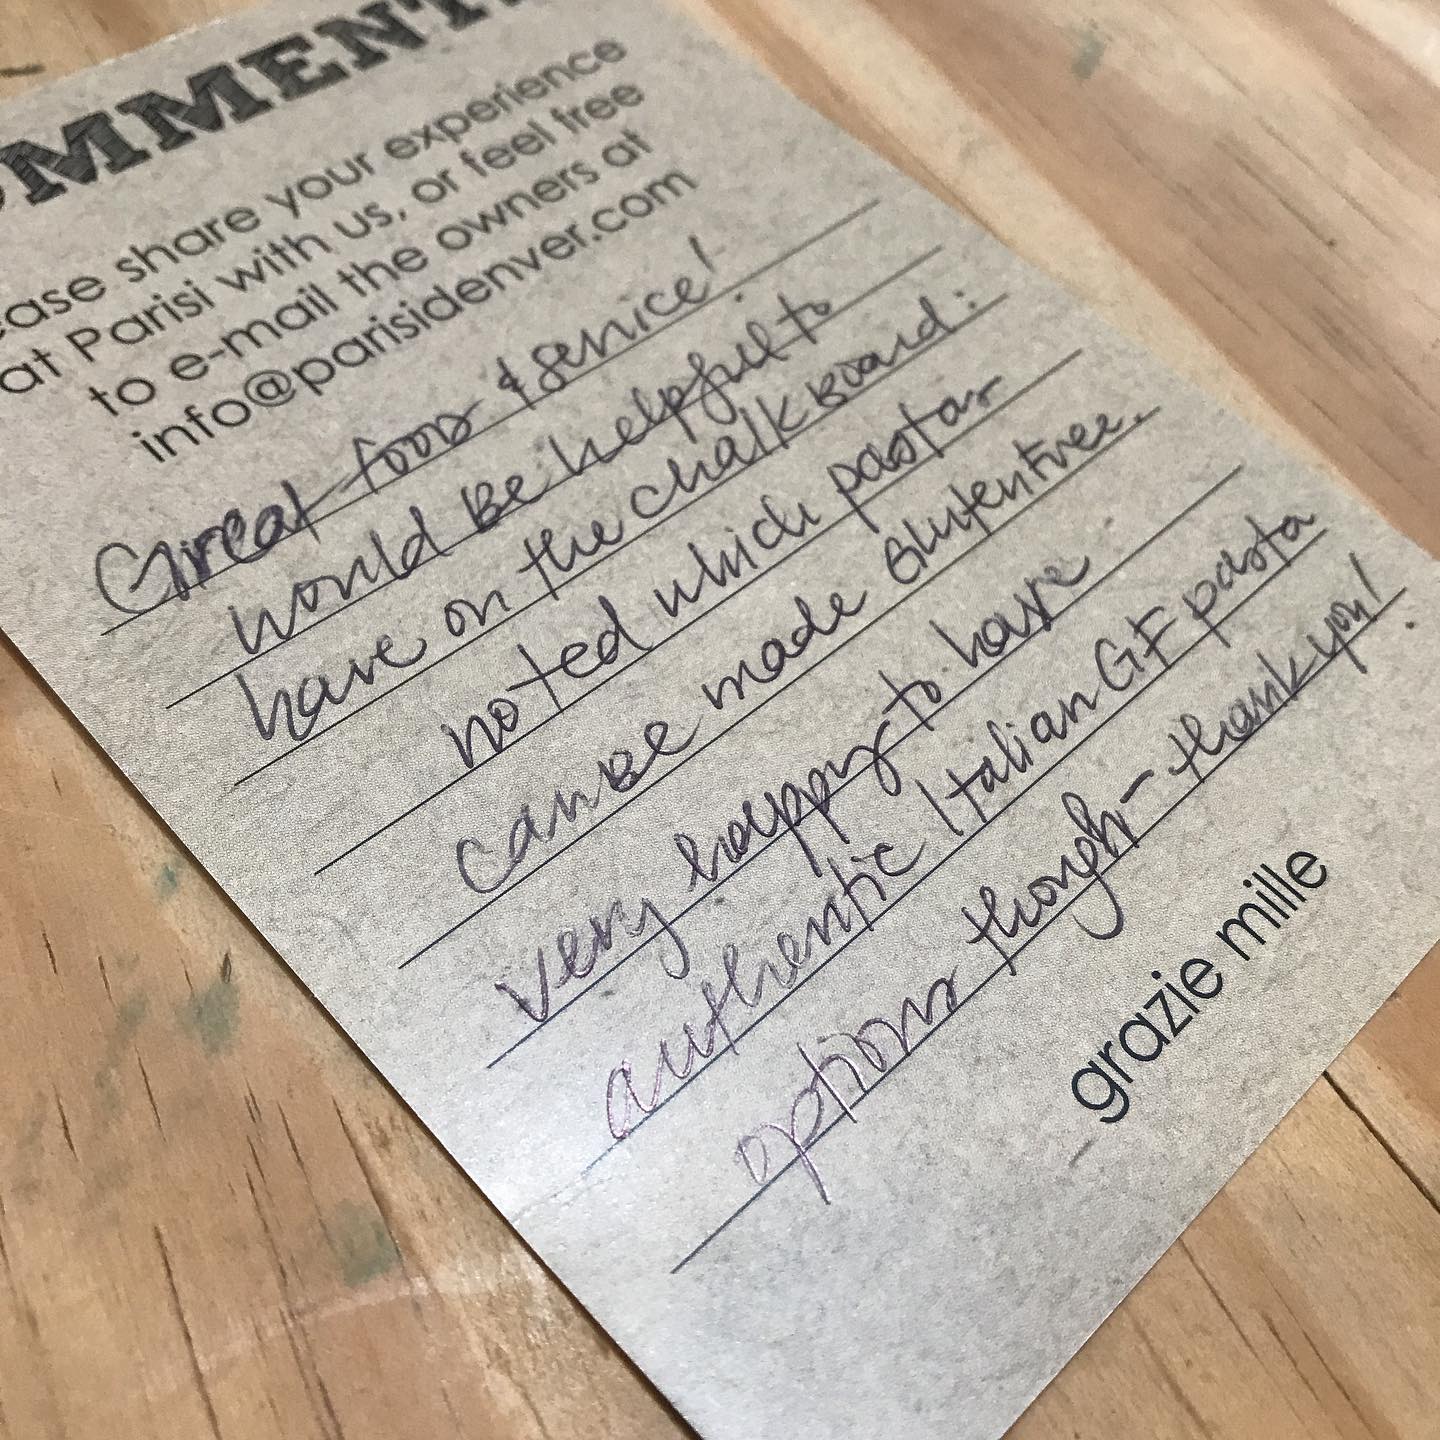 OMMENT
ease share your experience
at Parisi with us, or feel free
to e-mail the owners at
info@parisidenver.com
Great food & service!
would be helpful to
have on the chalkboard:
noted which pastas
can be made glutenfree.
very happy to have
authentic Italian GF pasta
options though - thank you!
grazie mille